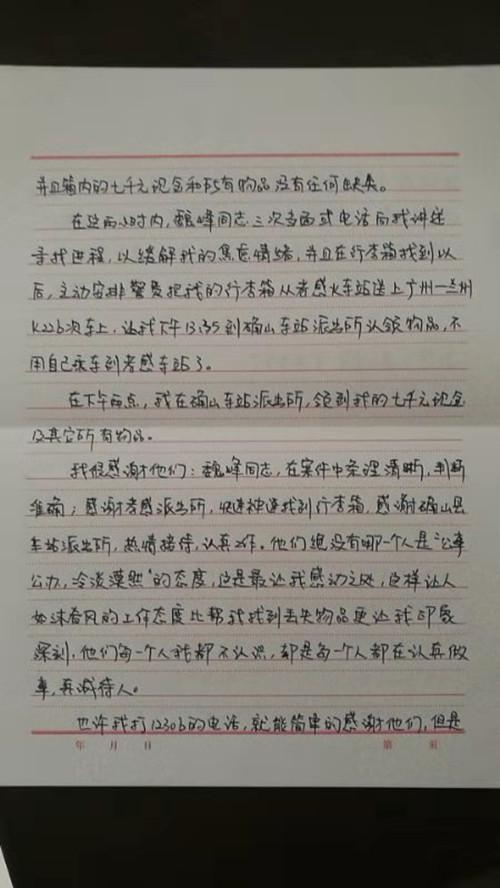 并且箱内的七千元现金和所有物品没有任何缺类。
在这两小时内,魏峰同志三次当面或电话向我讲述
寻找进程,以缓解我的焦急情绪,并且在行李箱找到以
后,主动安排警员把我的行李箱从孝感火车站送上广州—兰州
K226次车上,让我下午13:35到确山车站派出所认领物品,不
用自己乘车到孝感车站了。
在下午两点,我在确山车站派出所,领到我的七千元现金
及其它所有物品。
我很感谢他们:魏峰同志,在案件中条理清晰,判断
准确;感谢孝感派出所,快速神速找到行李箱,感谢确山县
车站派出所,热情接待,认真工作。他们绝没有哪一个人是“公事
公办,冷淡漠然”的态度,这是最让我感动之处,这样让人
如沐春风的工作态度比帮我找到丢失物品更让我印象
深刻,他们每一个人我都不认识,却是每一个人都在认真做
事,真诚待人。
也许我打12306的电话,就能简单的感谢他们,但是
年 月 日 第 页